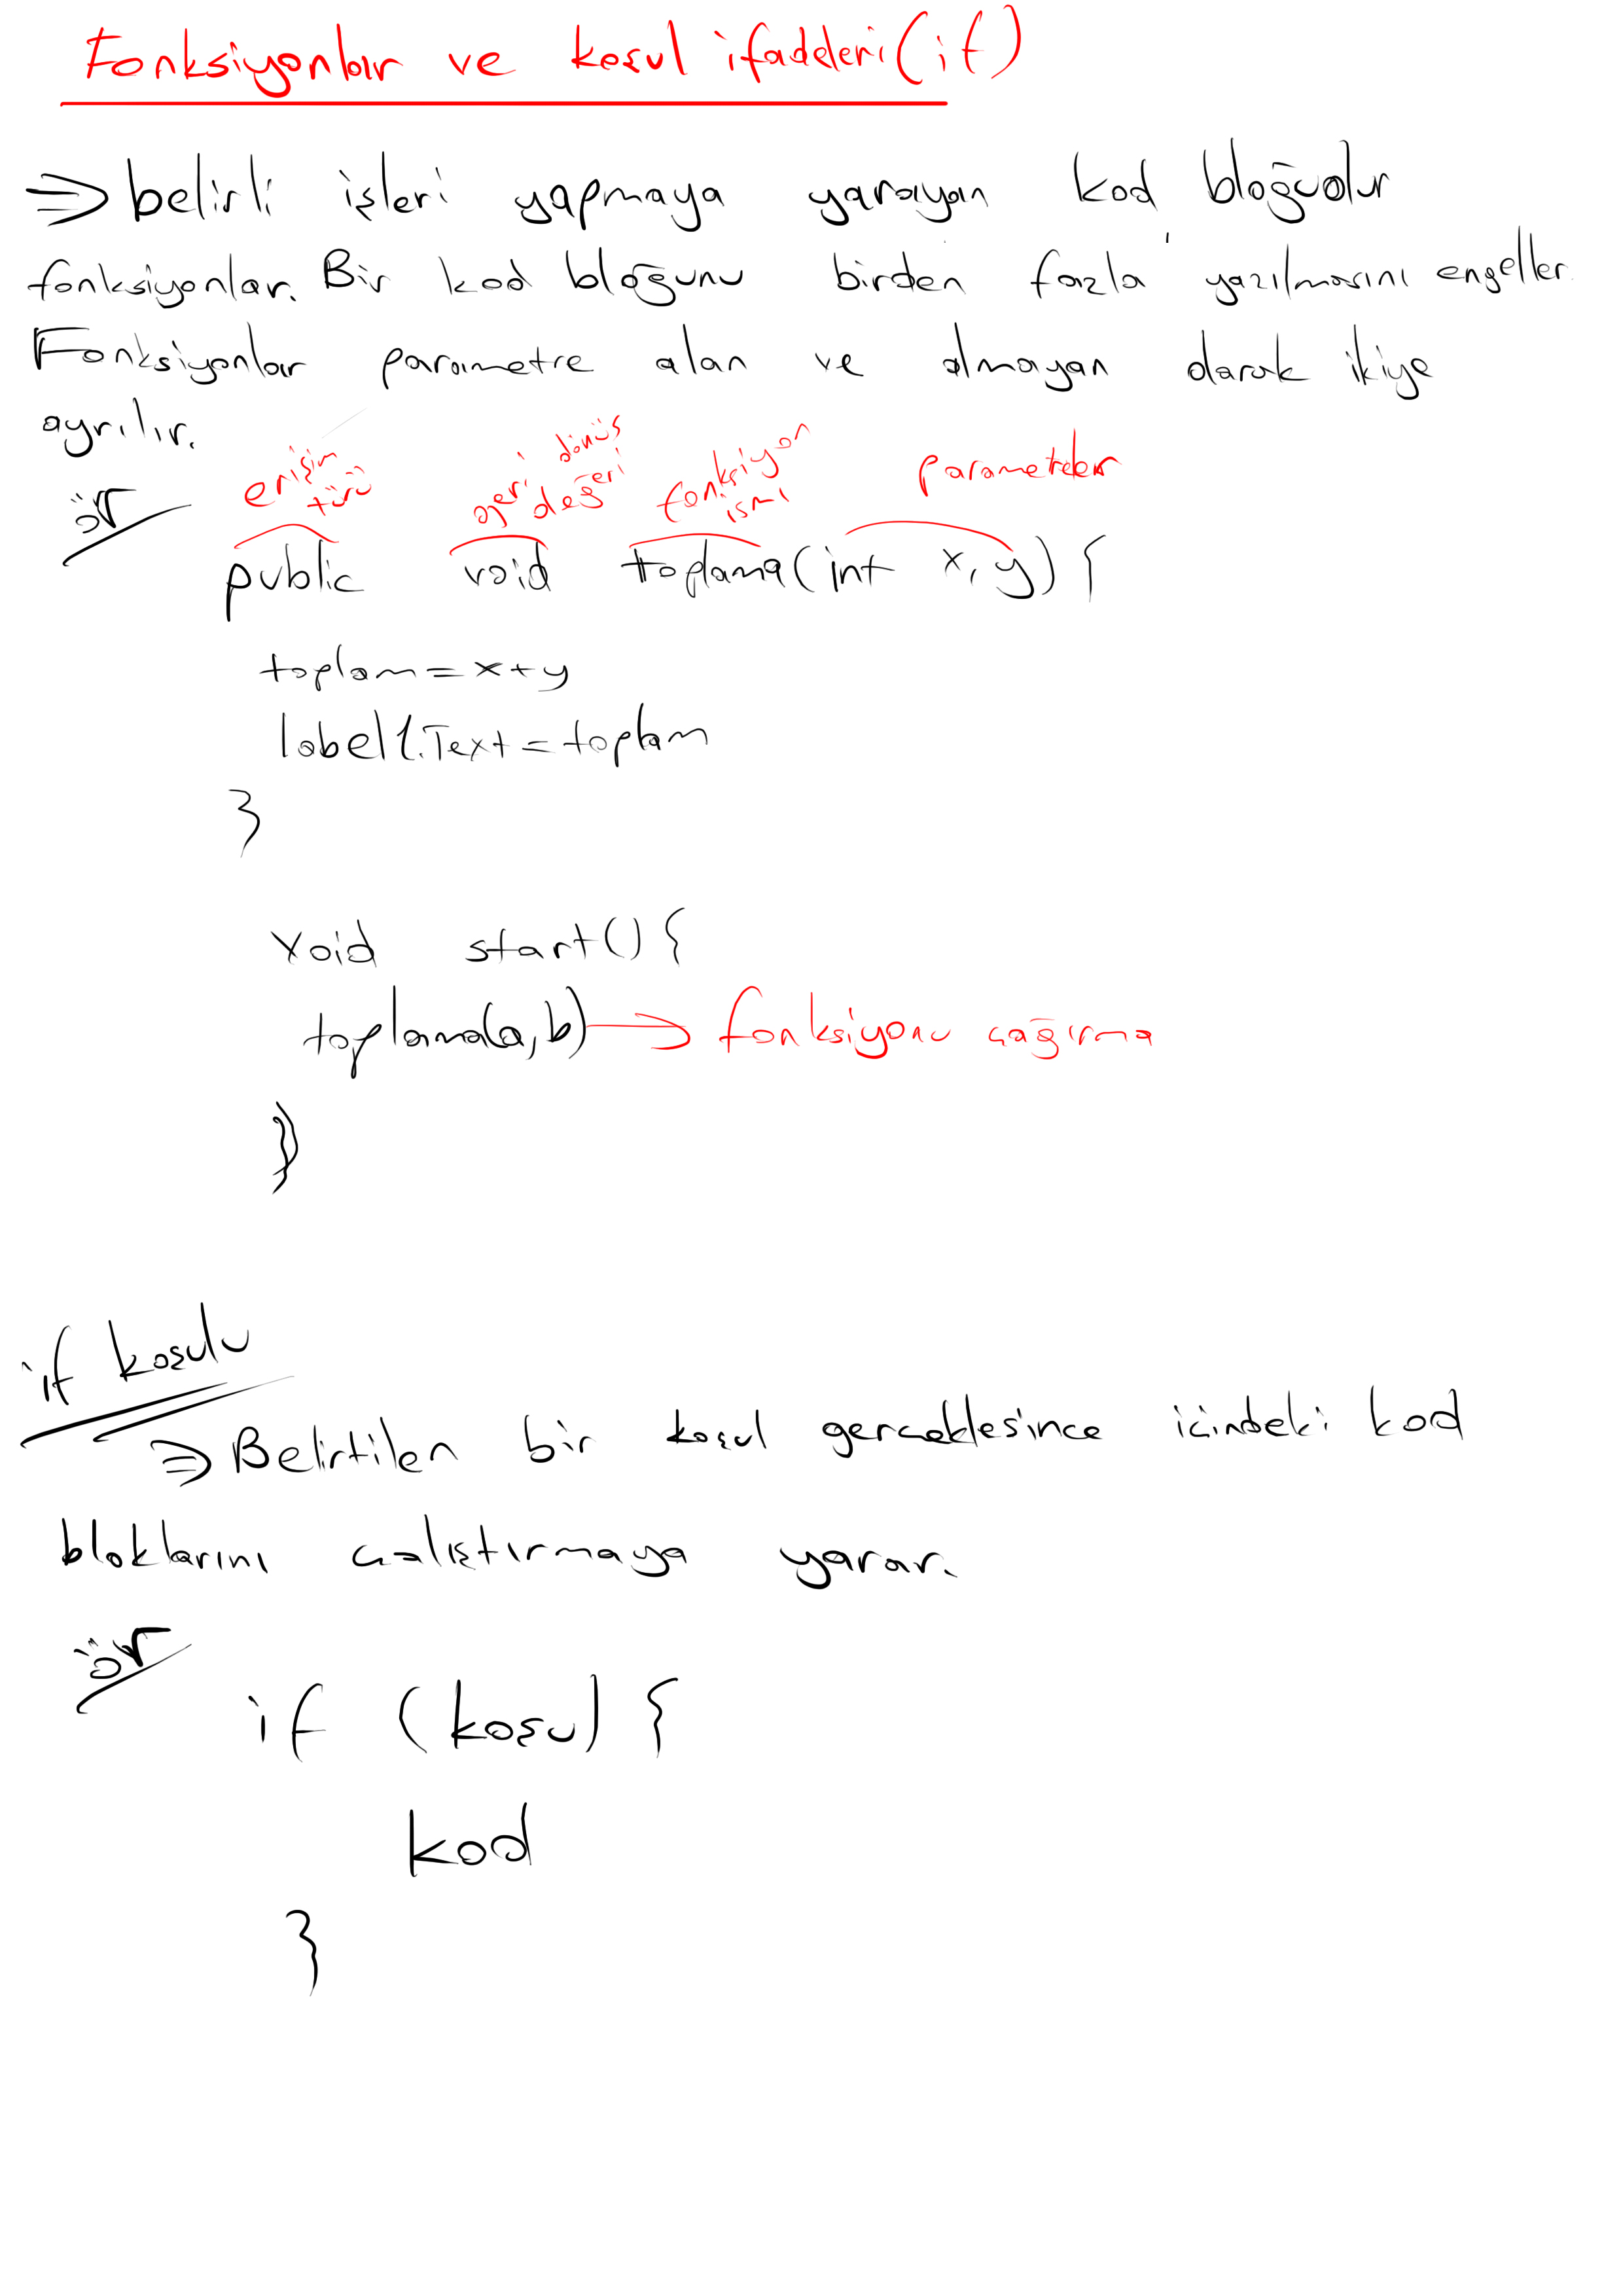 Fonksiyonlar ve koşul ifadeleri (if)
⇒ belirli işleri yapmaya yarayan kod bloğudur
fonksiyonlar. Bir kod bloğunu birden fazla yazılmasını engeller.
Fonksiyonlar parametre alan ve almayan olarak ikiye
ayrılır.
ör
erişim türü geri dönüş değeri fonksiyon ismi parametreler
public void toplama(int x, y) {
toplam = x + y
label1.Text = toplam
}
void start() {
toplama(a, b) → fonksiyonu çağırma
}
if koşulu
⇒ Belirtilen bir koşul gerçekleşince içindeki kod
bloklarını çalıştırmaya yarar.
ör
if (koşul) {
kod
}